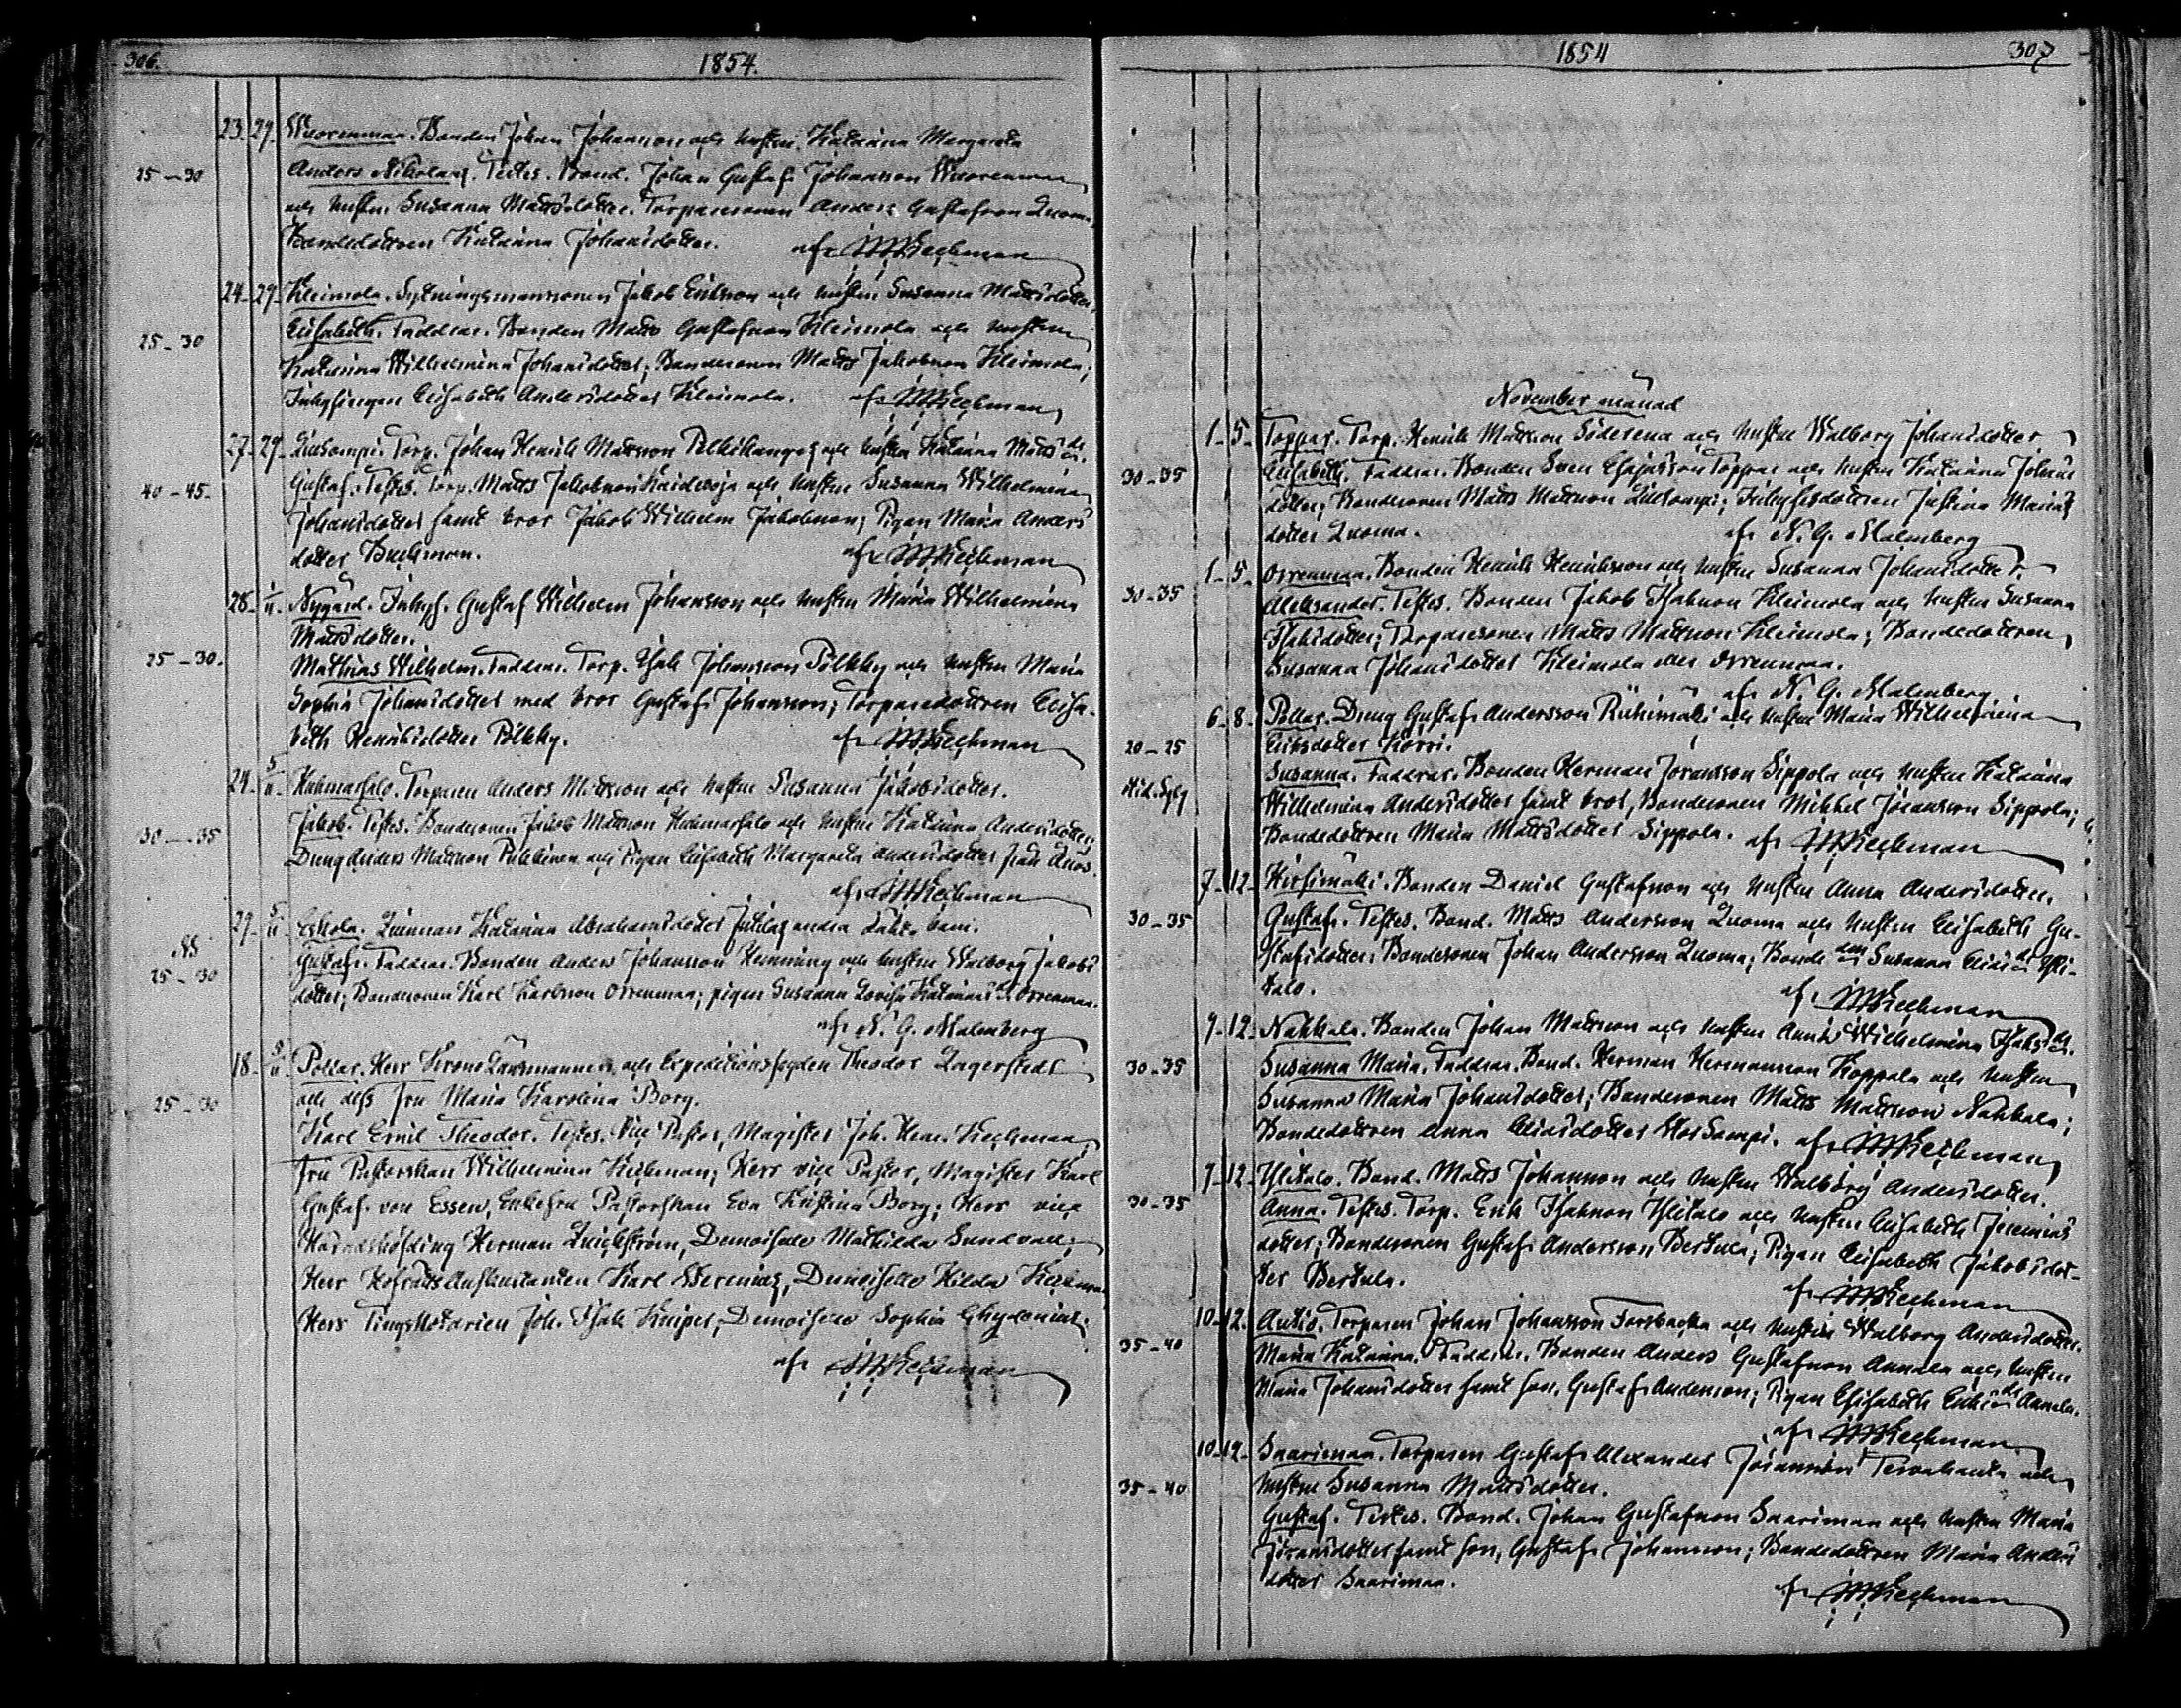 306. 1854.
23. 29. Wuorenmaa. Bonden Johan Johansson och hustru Katarina Margareta
25-30 Anders Nikolaus. Testes. Bond. Johan Gustaf Johansson Wuorenmaa
och hustru Susanna Mattsdotter. Torparesonen Anders Gustafsson Luoma
Bondedottren Katarina Johansdotter. af
24. 29. Kleimola. Sytningsmanssonen Jakob Eriksson och hustru Susanna Mattsdotter.
25-30 Elisabeth. Faddrar. Bonden Matts Gustafsson Kleimola och hustru
Katarina Wilhelmina Johansdotter; Bondesonen Matts Jakobsson Kleimola;
Inhysingen Elisabeth Andersdotter Kleimola. af
27. 29. Torp. Johan Henrik Mattsson och hustru Katarina Matts dr.
40-45. Gustaf. Testes. Torp. Matts Jakobsson och hustru Susanna Wilhelmina
Johansdotter samt bror Jakob Wilhelm Jakobsson; Pigan Maria Anders
dotter Buckman. af
28. 1/11. Nygård. Inhys. Gustaf Wilhelm Johansson och hustru Maria Wilhelmina
Mattsdotter.
25-30. Mathias Wilhelm. Faddrar. Torp. Isak Johansson Pölkky och hustru Maria
Sophia Johansdotter med bror Gustaf Johansson; Torparedottren Elisa-
beth Henriksdotter Pölkky. af
24. 5/11. Huhmarsalo. Torparen Anders Mattsson och hustru Susanna Jakobsdotter.
30-35 Jakob. Testes. Bondesonen Jakob Mattsson Huhmarsalo och hustru Katarina Andersdotter;
Dreng Anders Mattsson och Pigan Elisabeth Margareta Andersdotter från
af
29. 5/11. Eskola. Qvinnan Katarina Abrahamsdotter andra barn.
25-30 Gustaf. Faddrar. Bonden Anders Johansson Henning och hustru Walborg Jakobs
dotter; Bondesonen Karl Karlsson Orrenmaa; pigan Susanna Lovisa Orrenmaa.
af N. G. Malmberg
18. 5/11. Pollar. Herr Krono Länsmannen och Expeditionsfogden Theodor Lagerstedt
25-30 och dess Fru Maria Karolina Borg.
Karl Emil Theodor. Testes. Vice Pastor, Magister Joh. Hen.
Fru Pastorskan Wilhelmina; Herr vice Pastor, Magister Karl
Gustaf von Essen, Enkefru Pastorskan Eva Kristina Borg; Herr vice
Häradshöfding Herman, Demoiselle Mathilda Sundvall;
Herr Hofrätts Auskultanten Karl, Demoiselle Hilda
Herr Tings Notarien Joh. Isak, Demoiselle Sophia Chydenius.
af
1854 307
November månad
1. 5. Toppar. Torp. Henrik Mattsson Söderena och hustru Walborg Johansdotter
30-35 Elisabeth. Faddrar. Bonden Sven Esajasson Toppar och hustru Katarina Johans
dotter; Bondesonen Matts Mattsson; Inhysesdottren Justina Marias
dotter Luoma. af N. G. Malmberg
1. 5. Orrenmaa. Bonden Henrik Henriksson och hustru Susanna Johansdotter.
30-35 Aleksander. Testes. Bonden Jakob Isaksson Kleimola och hustru Susanna
Isaksdotter; Torparesonen Matts Mattsson Kleimola; Bondedottren
Susanna Johansdotter Kleimola eller Orrenmaa.
af N. G. Malmberg
6. 8. Pollar. Dreng Gustaf Andersson Riihimäki och hustru Maria Wilhelmina
20-25 Eriksdotter Korri.
Susanna. Faddrar. Bonden Herman Göransson Sippola och hustru Katarina
Wilhelmina Andersdotter samt bror, Bondesonen Mikkel Göransson Sippola;
Bondedottren Maria Mattsdotter Sippola. af
7. 12. Hirsimäki. Bonden Daniel Gustafsson och hustru Anna Andersdotter.
30-35 Gustaf. Testes. Bond. Matts Andersson Luoma och hustru Elisabeth Gu-
stafsdotter; Bondesonen Johan Andersson Luoma; Bonde Susanna Yli-
talo. af
9. 12. Nahkala. Bonden Johan Mattsson och hustru Anna Wilhelmina Isaks dr.
30-35 Susanna Maria. Faddrar. Bond. Herman Hermansson Koppala och hustru
Susanna Maria Johansdotter; Bondesonen Matts Mattsson Nahkala;
Bondedottren Anna Eliasdotter. af
7. 12. Ylitalo. Bond. Matts Johansson och hustru Walborg Andersdotter.
30-35 Anna. Testes. Torp. Erik Isaksson Ylitalo och hustru Elisabeth Jeremias
dotter; Bondesonen Gustaf Andersson Bertula; Pigan Elisabeth Jakobsdot-
ter Bertula. af
10. 12. Antio. Torparen Johan Johansson Forsbacka och hustru Walborg Andersdotter.
35-40 Maria Katarina. Faddrar. Bonden Anders Gustafsson Annala och hustru
Maria Johansdotter samt son, Gustaf Andersson; Pigan Elisabeth Eriks dr Annala.
af
10. 12. Saarimaa. Torparen Gustaf Alexander Göransson och
35-40 hustru Susanna Mattsdotter.
Gustaf. Testes. Bond. Johan Gustafsson Saarimaa och hustru Maria
Göransdotter samt son, Gustaf Johansson; Bondedottren Maria Anders
dotter Saarimaa. af